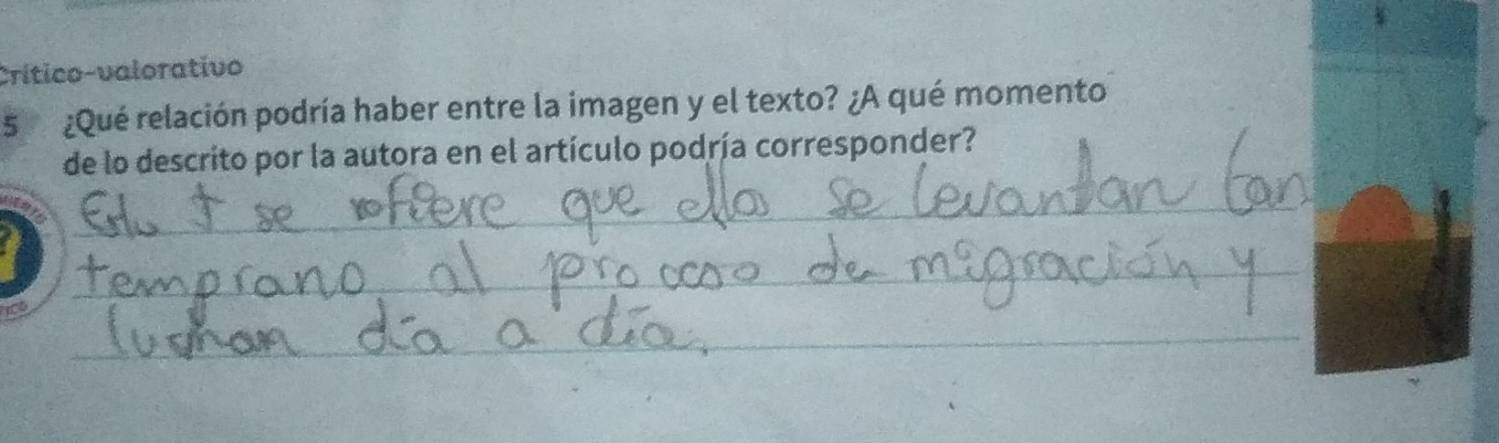 Crítico-valorativo
5 ¿Qué relación podría haber entre la imagen y el texto? ¿A qué momento
de lo descrito por la autora en el artículo podría corresponder?
se refiere que ellos se levantan tan
temprano al proceso de migración y
luchan día a día.